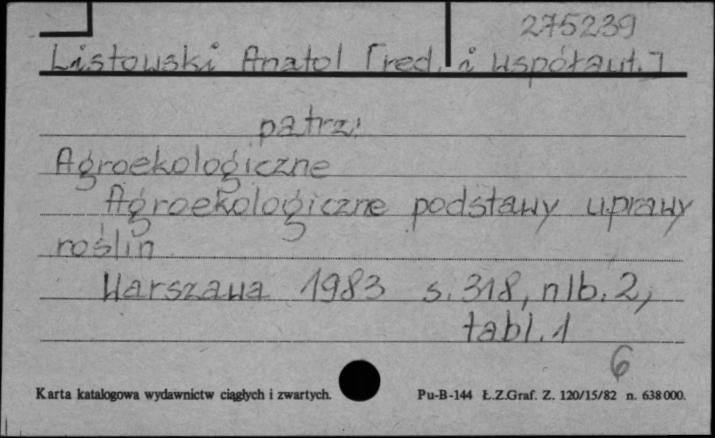 275239
Listowski Anatol [red. i współaut.]
patrz:
Agroekologiczne
Agroekologiczne podstawy uprawy
roślin
Warszawa 1983 s. 318, nlb. 2,
tabl. 1
6
Karta katalogowa wydawnictw ciągłych i zwartych. Pu-B-144 Ł.Z.Graf. Z. 120/15/82 n. 638000.